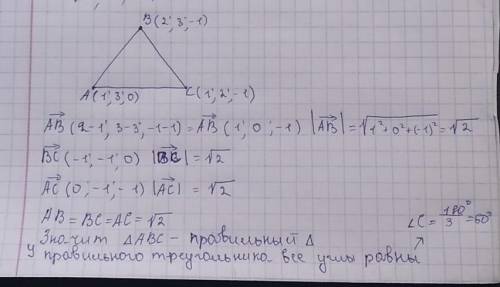 B(2; 3; -1)
A(1; 3; 0) C(1; 2; -1)
AB⃗ (2-1; 3-3; -1-1) = AB⃗ (1; 0; -1) |AB⃗| = √(1²+0²+(-1)²) = √2
BC⃗ (-1; -1; 0) |BC⃗| = √2
AC⃗ (0; -1; -1) |AC⃗| = √2
AB = BC = AC = √2
∠C = 180°/3 = 60°
Значит △ABC - правильный △
У правильного треугольника все углы равны